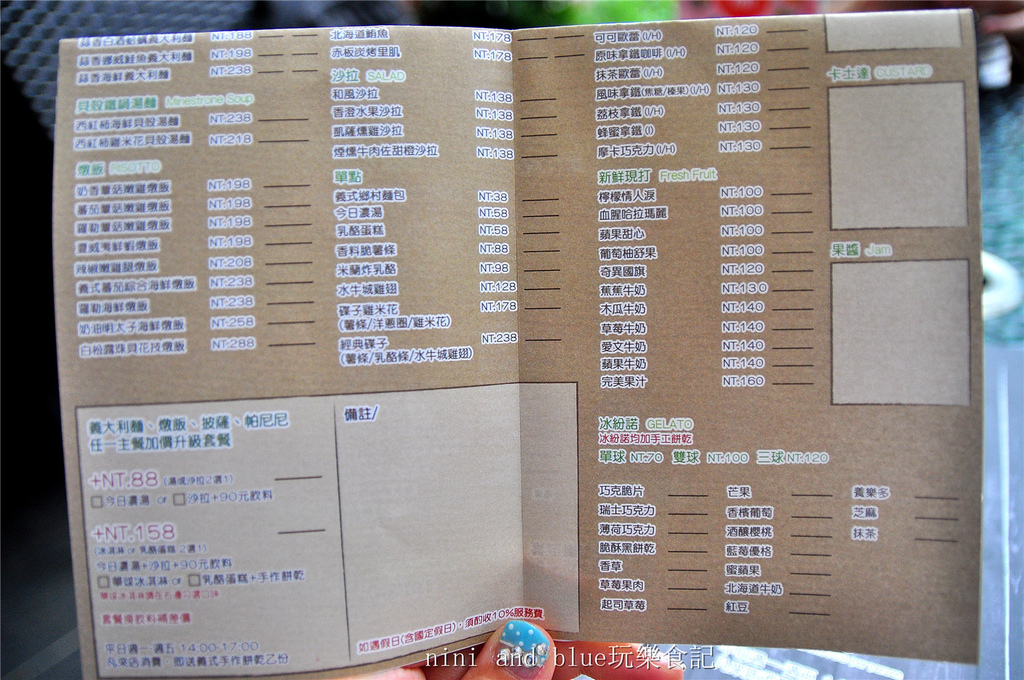 蒜香白酒蛤蠣義大利麵 NT.188
蒜香挪威鮭魚義大利麵 NT.198
蒜香海鮮義大利麵 NT.238
貝殼鐵鍋湯麵 Minestrone Soup
西紅柿海鮮貝殼湯麵 NT.238
西紅柿雞米花貝殼湯麵 NT.218
燉飯 RISOTTO
奶香蕈菇嫩雞燉飯 NT.198
蕃茄蕈菇嫩雞燉飯 NT.198
羅勒蕈菇嫩雞燉飯 NT.198
夏威夷鮮蝦燉飯 NT.198
辣椒嫩雞腿燉飯 NT.208
義式蕃茄綜合海鮮燉飯 NT.238
羅勒海鮮燉飯 NT.238
奶油明太子海鮮燉飯 NT.258
白松露珠貝花技燉飯 NT.288
北海道鮪魚 NT.178
赤板炭烤里肌 NT.178
沙拉 SALAD
和風沙拉 NT.138
香澄水果沙拉 NT.138
凱薩燻雞沙拉 NT.138
煙燻牛肉佐甜橙沙拉 NT.138
單點
義式鄉村麵包 NT.38
今日濃湯 NT.58
乳酪蛋糕 NT.58
香料脆薯條 NT.88
米蘭炸乳酪 NT.98
水牛城雞翅 NT.128
碟子雞米花 NT.178
(薯條/洋蔥圈/雞米花)
經典碟子 NT.238
(薯條/乳酪條/水牛城雞翅)
義大利麵、燉飯、披薩、帕尼尼
任一主餐加價升級套餐
+NT.88 (濃或沙拉2選1)
今日濃湯 or 沙拉+90元飲料
+NT.158
(冰淇淋 or 乳酪蛋糕 2選1)
今日濃湯+沙拉+90元飲料
單球冰淇淋 or 乳酪蛋糕+手作餅乾
單球冰淇淋請在右邊勾選口味
套餐換飲料補差價
平日週一-週五 14:00-17:00
凡來店消費，即送義式手作餅乾乙份
備註/
如遇假日(含國定假日)，須酌收10%服務費
可可歐蕾(I/H) NT.120
原味拿鐵咖啡(I/H) NT.120
抹茶歐蕾(I/H) NT.120
風味拿鐵(焦糖/榛果)(I/H) NT.130
荔枝拿鐵(I/H) NT.130
蜂蜜拿鐵(I) NT.130
摩卡巧克力(I/H) NT.130
新鮮現打 Fresh Fruit
檸檬情人淚 NT.100
血腥哈拉瑪麗 NT.100
蘋果甜心 NT.100
葡萄柚舒果 NT.100
奇異國旗 NT.120
蕉蕉牛奶 NT.130
木瓜牛奶 NT.140
草莓牛奶 NT.140
愛文牛奶 NT.140
蘋果牛奶 NT.140
完美果汁 NT.160
冰紛諾 GELATO
冰紛諾均加手工餅乾
單球 NT.70 雙球 NT.100 三球 NT.120
巧克脆片
瑞士巧克力
薄荷巧克力
脆酥黑餅乾
香草
草莓果肉
起司草莓
芒果
香檳葡萄
酒釀櫻桃
藍莓優格
蜜蘋果
北海道牛奶
紅豆
養樂多
芝麻
抹茶
卡士達 CUSTARD
果醬 Jam
nini and blue玩樂食記